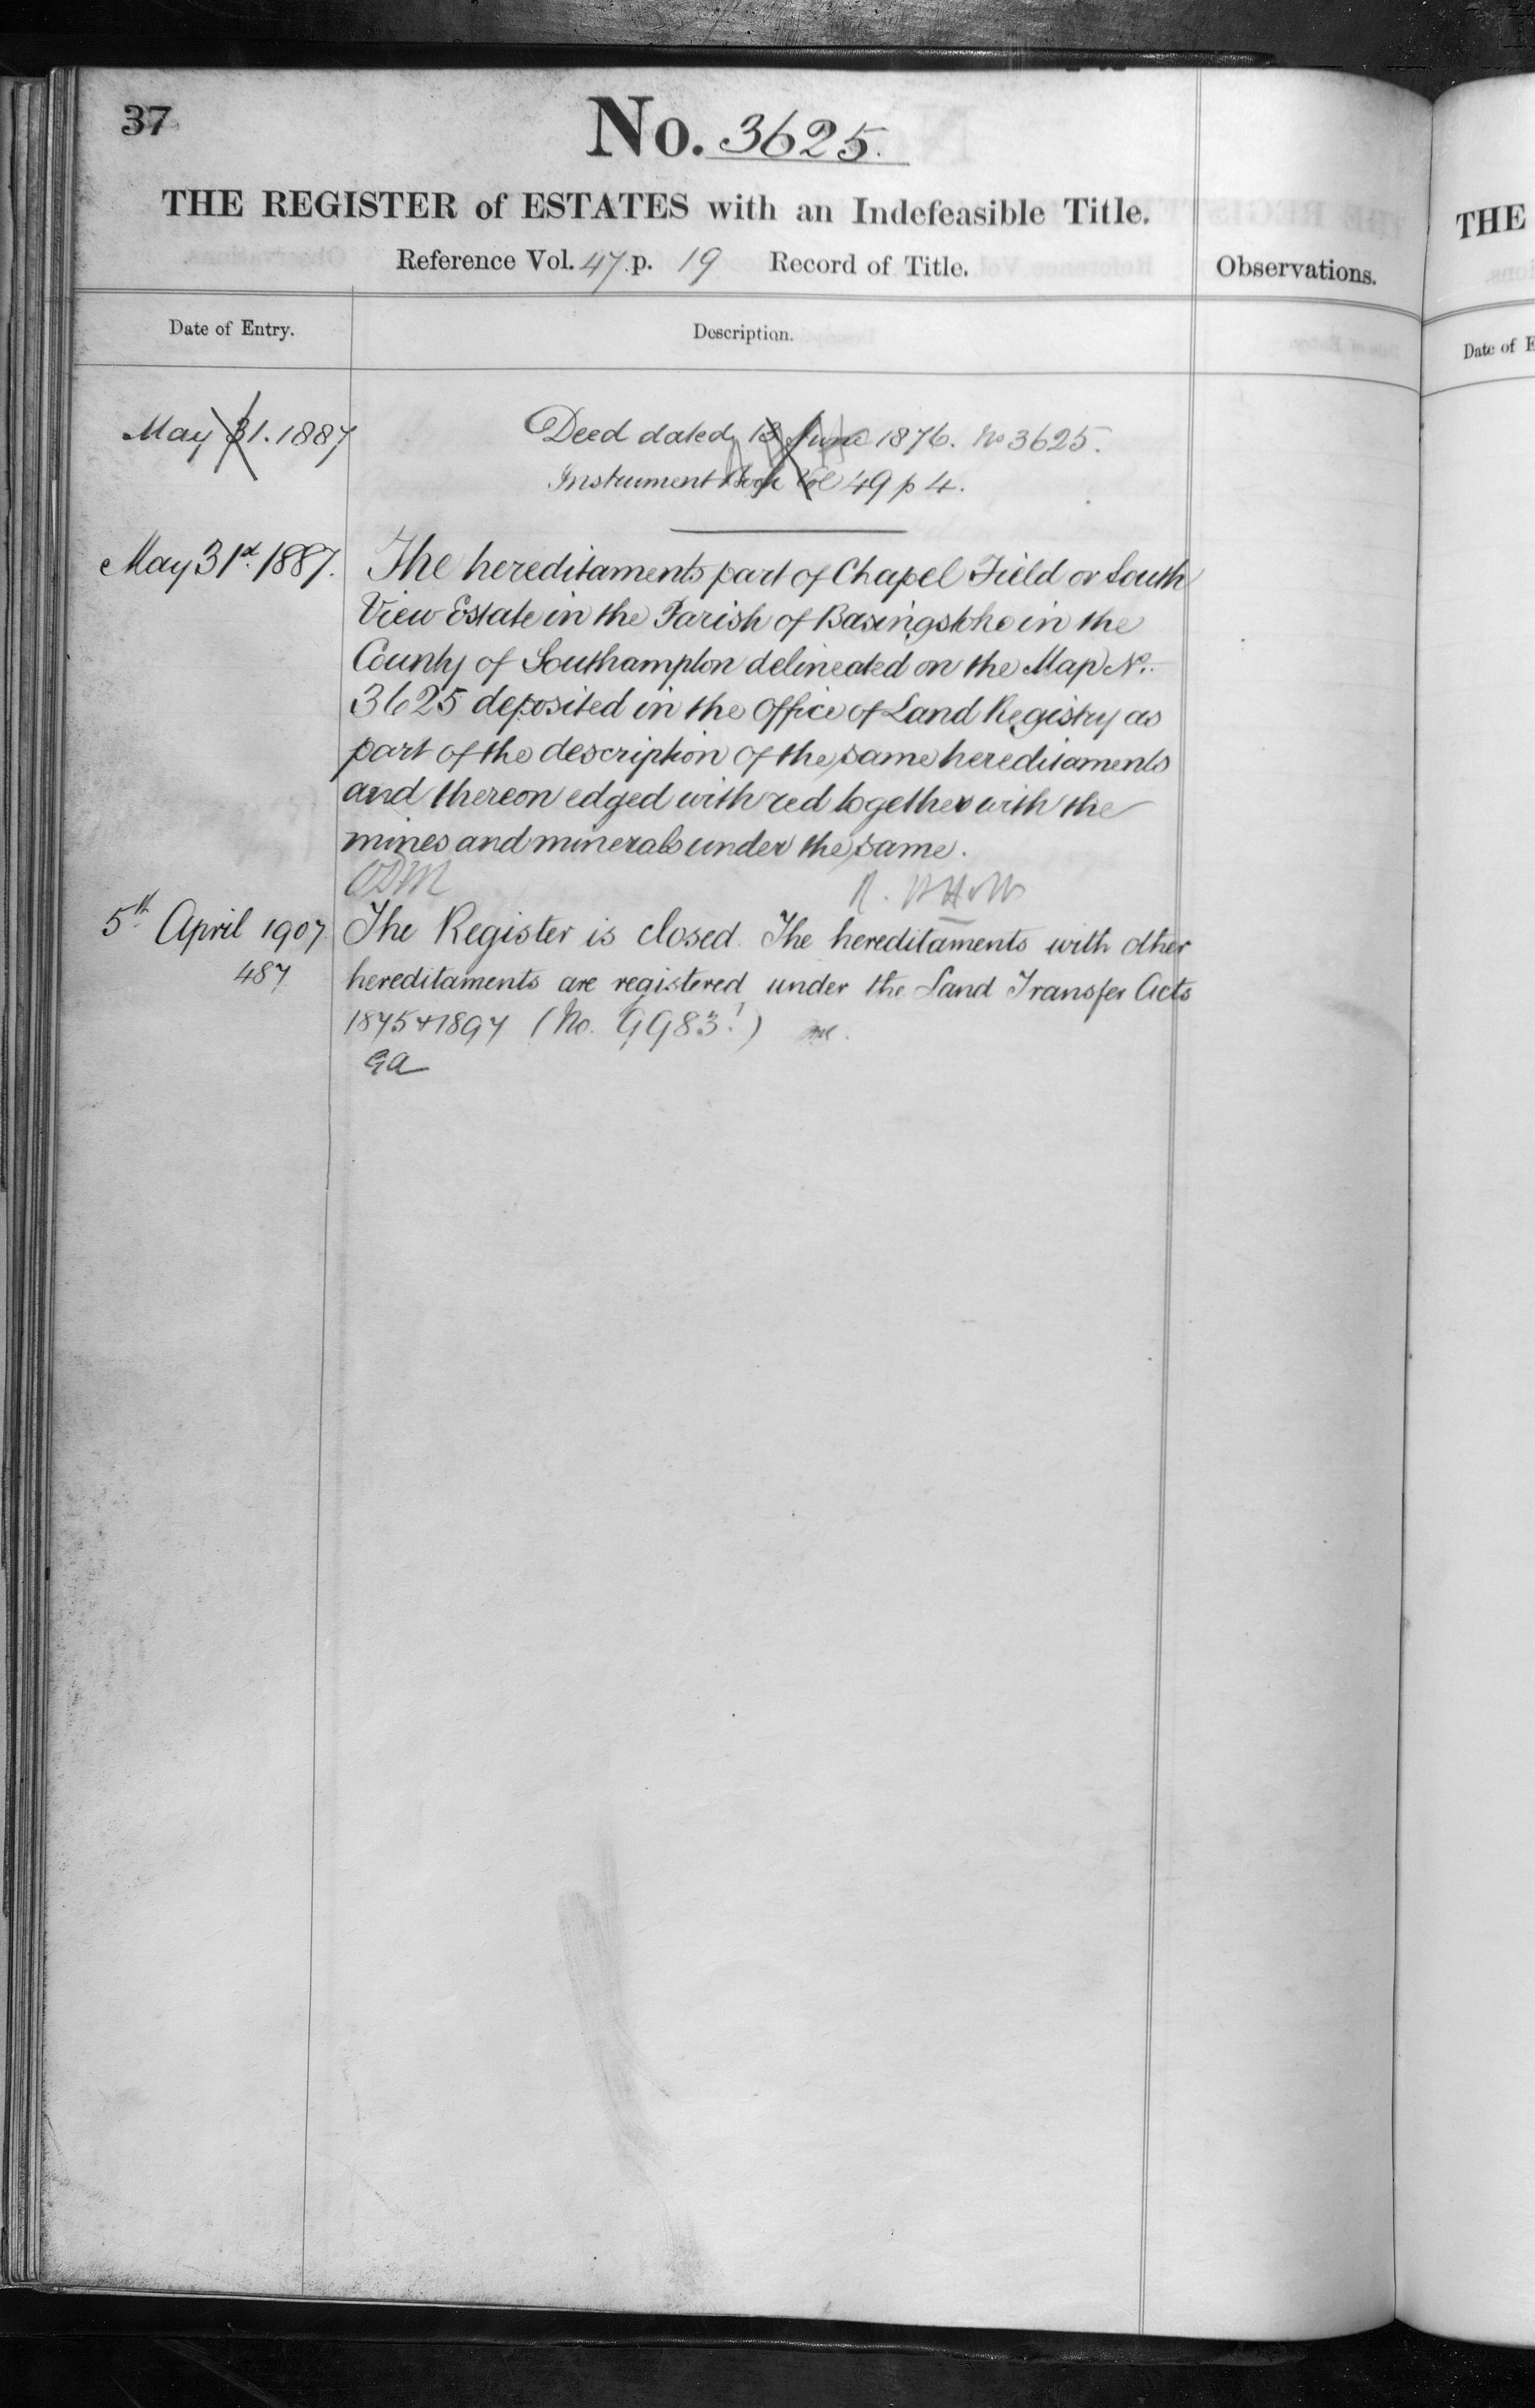 37
No. 3625.
THE REGISTER of ESTATES with an Indefeasible Title.
Reference Vol. 47. p. 19 Record of Title.
Observations.
Date of Entry.
Description.
May 31. 1887
Deed dated 13 June 1876. No 3625.
Instrument Book Vol 49 p 4.
May 31st. 1887.
The hereditaments part of Chapel Field or South
View Estate in the Parish of Basingstoke in the
County of Southampton delineated on the Map No.
3625 deposited in the Office of Land Registry as
part of the description of the same hereditaments
and thereon edged with red together with the
mines and minerals under the same.
5th April 1907
The Register is closed. The hereditaments with other
487
hereditaments are registered under the Land Transfer Acts
1875 & 1897 (No.
GA
THE
Date of E